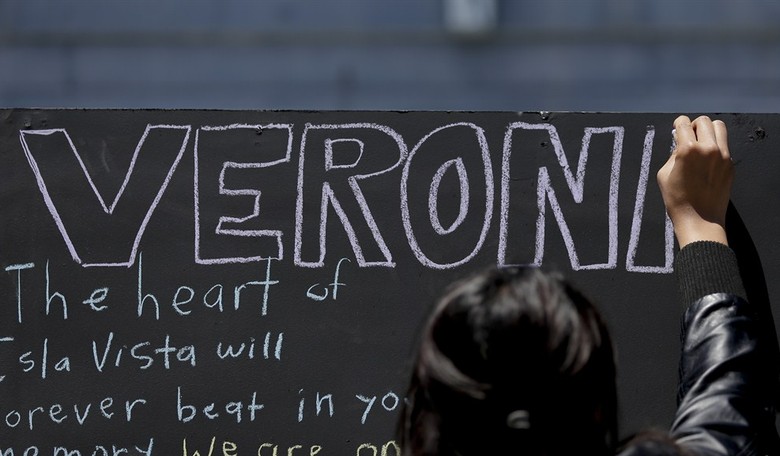 VERONI
The heart of
Isla Vista will
forever beat in yo
memory We are on